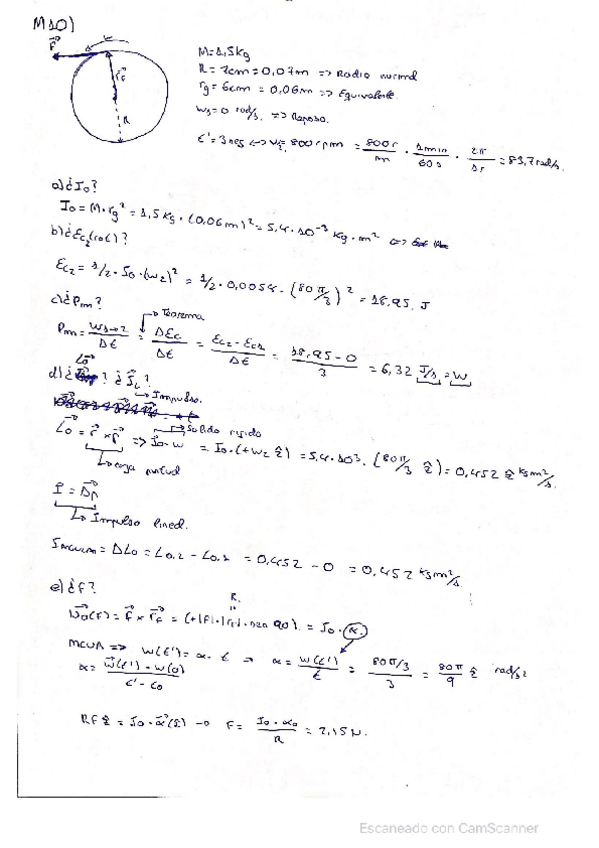 M10)
F
w
r_F
R
M=1,5Kg
R = 7cm = 0,07m => Radio normal
rg = 6cm = 0,06m => Equivalente.
w1 = 0 rad/s. => Reposo.
t' = 3seg <-> w2 = 800rpm = 800r/m · 1min/60s · 2π/1r = 83,7rad/s.
a) ¿Io?
Io = M·rg² = 1,5Kg·(0,06m)² = 5,4·10⁻³ Kg·m² <=>
b) ¿Ec2(rot)?
Ec2 = 1/2·Io·(w2)² = 1/2·0,0054·(80π/3)² = 18,95 J
c) ¿Pm?
↳ Teorema
Pm = W1→2/Δt = ΔEc/Δt = Ec2 - Ec1/Δt = 18,95 - 0/3 = 6,32 J/s = W
d) ¿Lo? ¿JL?
↳ Impulso.
↳ Solido rigido
Lo = r x P => Io·w = Io·(+w2 k) = 5,4·10³·(80π/3 k) = 0,452 k Kgm²/s.
↳ carga puntual
I = Δp
↳ Impulso lineal.
J angular = ΔLo = Lo,2 - Lo,1 = 0,452 - 0 = 0,452 Kgm²/s
e) ¿F?
R.
No(F) = F x rF = (+|F|·|r|·sen 90) = Io·α.
MCUA => W(t') = α·t => α = W(t')/t = 80π/3/3 = 80π/9 k rad/s²
α = W(t') - W(0)/t' - to
RF k = Io·α(k) -> F = Io·αo/R = 2,15N.
Escaneado con CamScanner